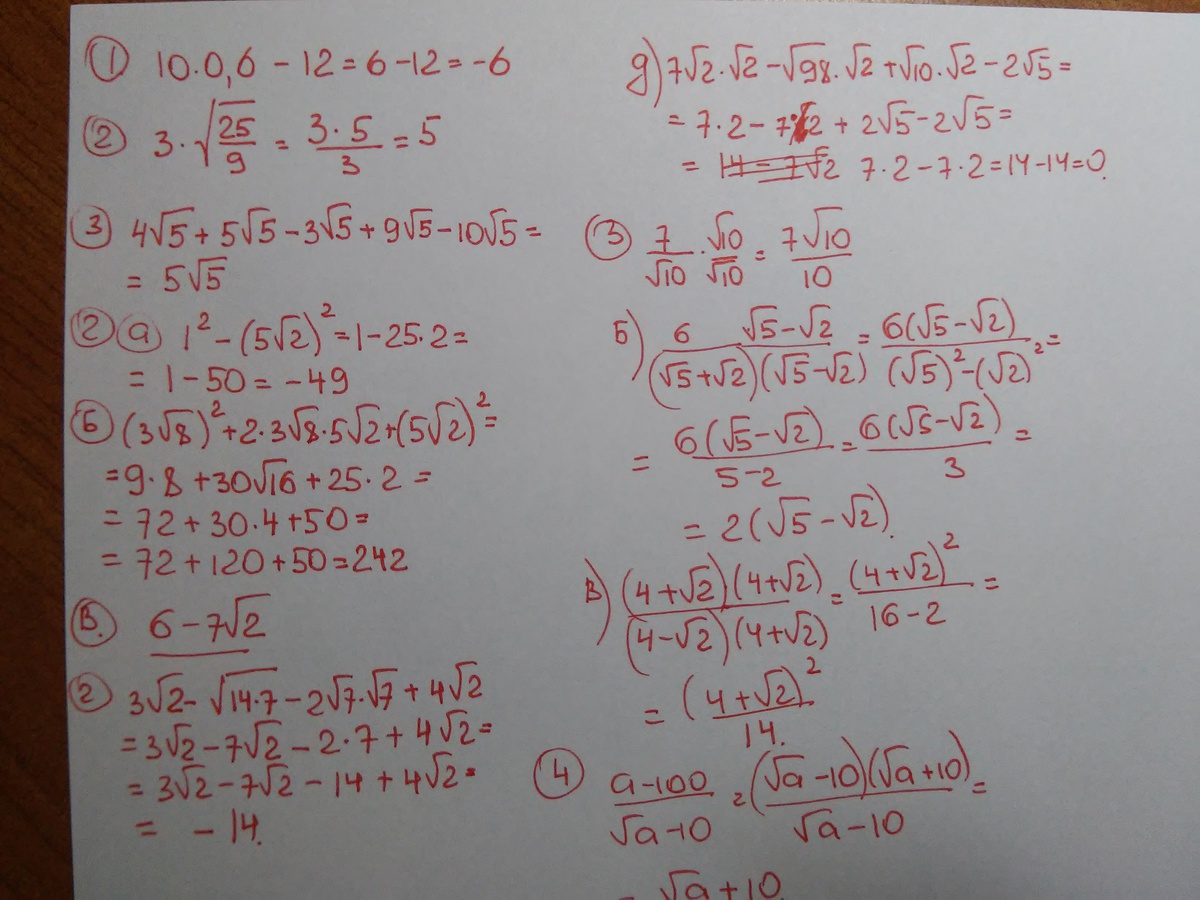 ① 10·0,6 - 12 = 6 - 12 = -6
② 3·√(25/9) = (3·5)/3 = 5
③ 4√5 + 5√5 - 3√5 + 9√5 - 10√5 =
= 5√5
② ⓐ 1² - (5√2)² = 1 - 25·2 =
= 1 - 50 = -49
Б (3√8)² + 2·3√8·5√2 + (5√2)² =
= 9·8 + 30√16 + 25·2 =
= 72 + 30·4 + 50 =
= 72 + 120 + 50 = 242
В. 6 - 7√2
г 3√2 - √(14·7) - 2√7·√7 + 4√2
= 3√2 - 7√2 - 2·7 + 4√2 =
= 3√2 - 7√2 - 14 + 4√2 =
= -14.
д) 7√2·√2 - √98·√2 + √10·√2 - 2√5 =
= 7·2 - 7·2 + 2√5 - 2√5 =
= 14 - 7√2 7·2 - 7·2 = 14 - 14 = 0.
③ 7/√10 · √10/√10 = 7√10/10
Б) 6 √5-√2/(√5+√2)(√5-√2) = 6(√5-√2)/(√5)²-(√2)² =
= 6(√5-√2)/5-2 = 6(√5-√2)/3 =
= 2(√5-√2).
В) (4+√2)(4+√2)/(4-√2)(4+√2) = (4+√2)²/16-2 =
= (4+√2)²/14.
④ a-100/√a-10 = (√a-10)(√a+10)/√a-10 =
= √a+10